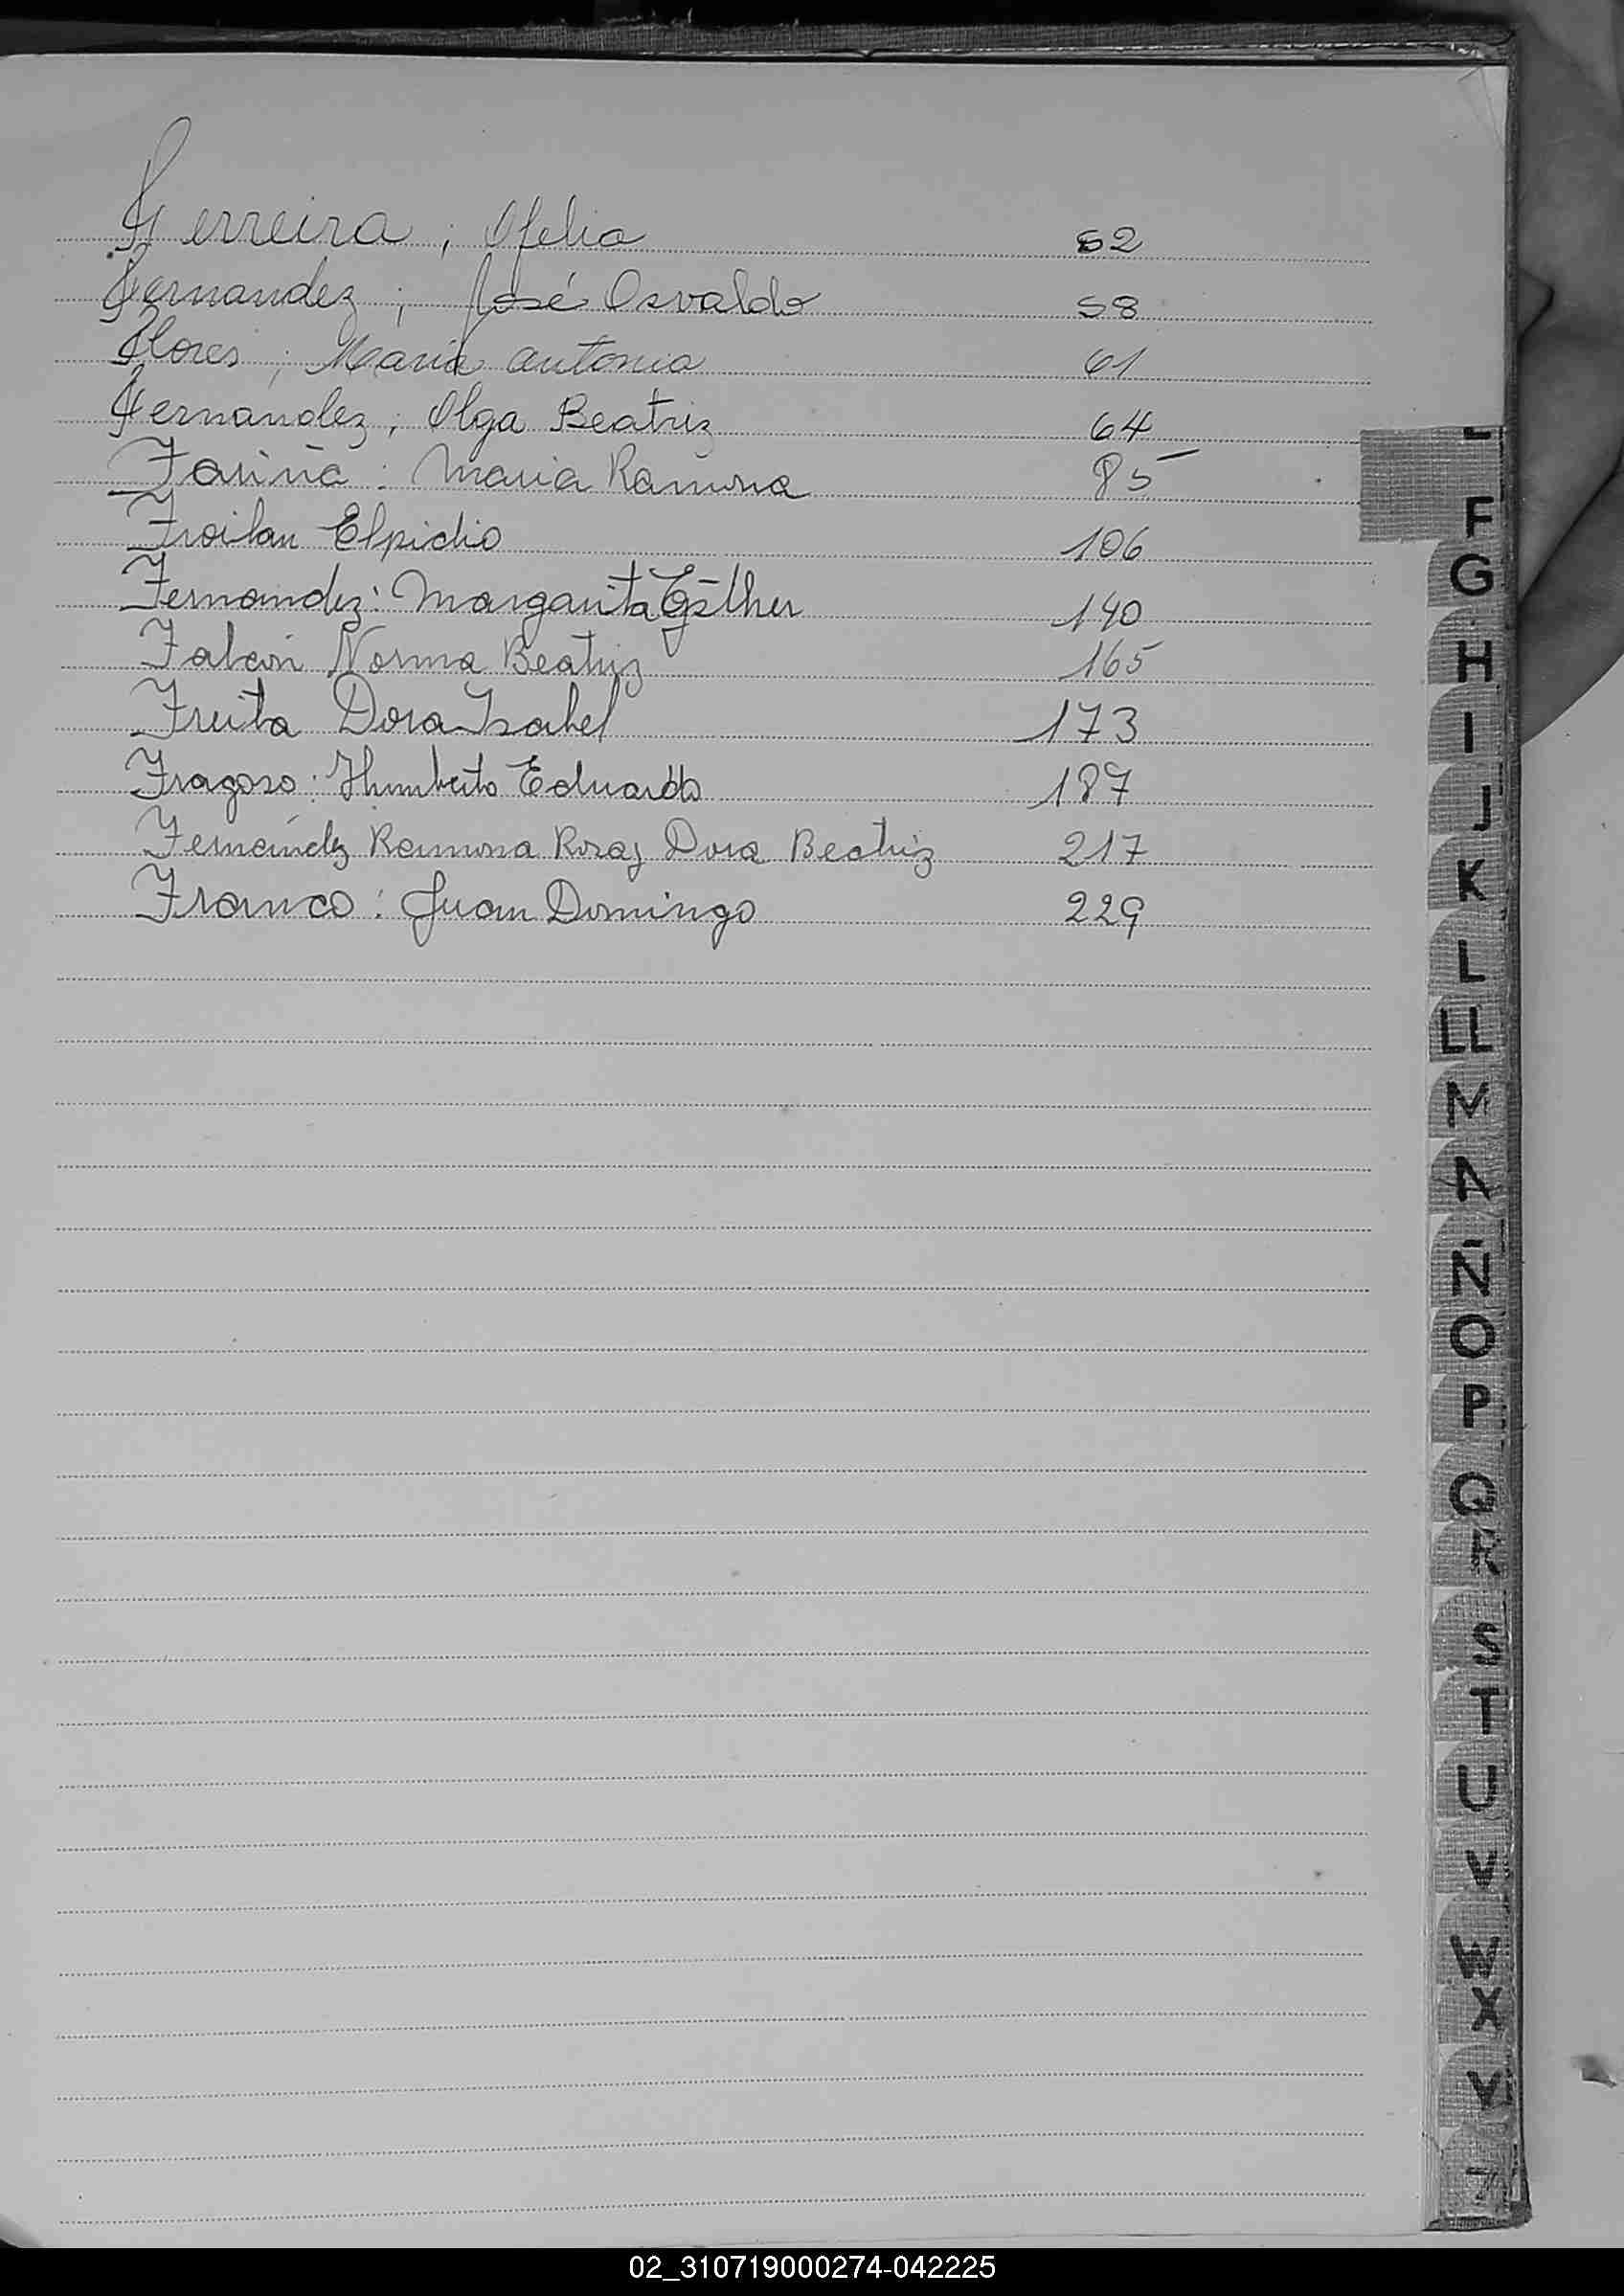 Ferreira ; Ofelia 52
Fernandez ; José Osvaldo 58
Flores ; Maria Antonia 61
Fernández ; Olga Beatriz 64
Fariña : Maria Ramona 85
Froilan Elpidio 106
Fernandez : Margarita Esther 140
Falcón Norma Beatriz 165
Freita Dora Isabel 173
Fragoso : Humberto Eduardo 187
Fernández Ramona Rosa y Dora Beatriz 217
Franco : Juan Domingo 229
F
G
H
I
J
K
L
LL
M
N
Ñ
O
P
Q
R
S
T
U
V
W
X
Y
Z
02_310719000274-042225